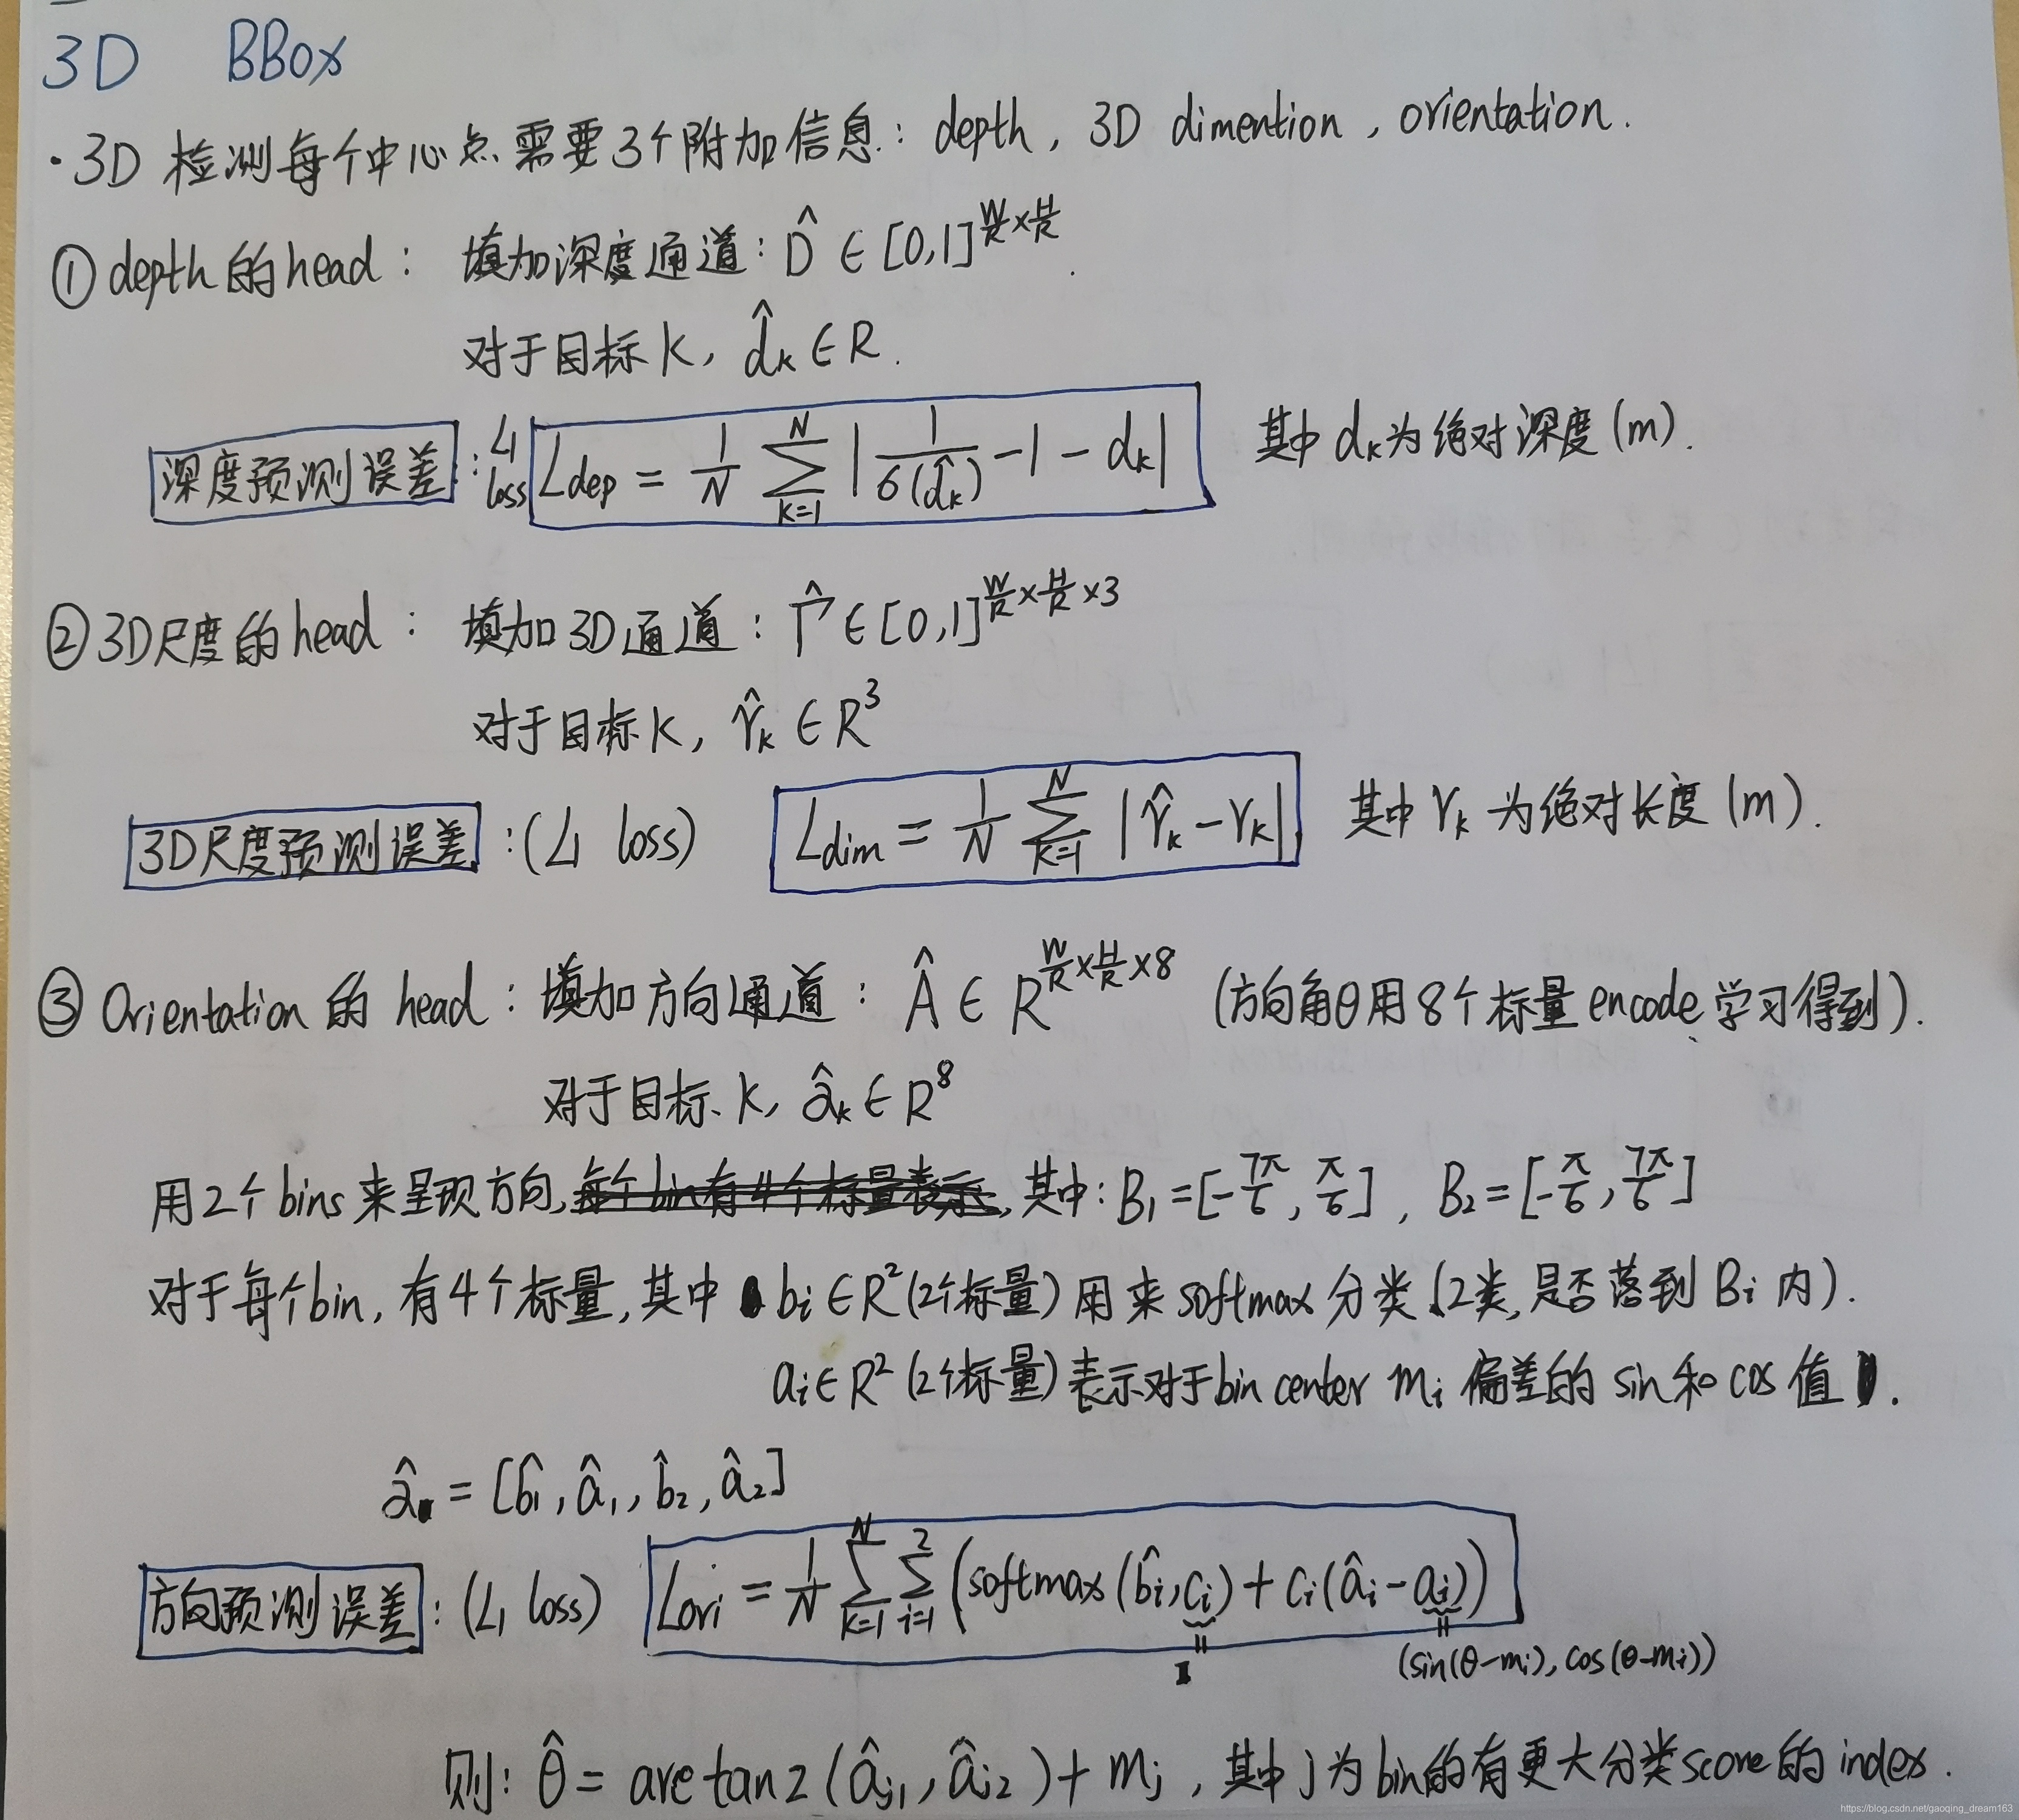 3D BBox
·3D 检测每个中心点需要3个附加信息: depth, 3D dimention, orientation.
① depth 的 head: 填加深度通道: D̂ ∈ [0,1]^{W/R × H/R}.
对于目标 k, d̂_k ∈ R.
深度预测误差: L1 loss L_dep = 1/N ∑_{k=1}^{N} | 1/σ(d̂_k) - 1 - d_k | 其中 d_k 为绝对深度 (m).
② 3D尺度的 head: 填加 3D 通道: Γ̂ ∈ [0,1]^{W/R × H/R × 3}
对于目标 k, γ̂_k ∈ R^3
3D尺度预测误差: (L1 loss) L_dim = 1/N ∑_{k=1}^{N} | γ̂_k - γ_k | 其中 γ_k 为绝对长度 (m).
③ Orientation 的 head: 填加方向通道: Â ∈ R^{W/R × H/R × 8} (方向角θ用 8个标量 encode 学习得到).
对于目标 k, α̂_k ∈ R^8
用2个 bins 来呈现方向, 每个bin有4个标量表示, 其中: B_1 = [-7π/6, π/6], B_2 = [-π/6, 7π/6]
对于每个bin, 有4个标量, 其中 b_i ∈ R^2 (2个标量) 用来 softmax 分类 (2类, 是否落到 B_i 内).
a_i ∈ R^2 (2个标量) 表示对于 bin center m_i 偏差的 sin 和 cos 值.
α̂ = [b̂_1, â_1, b̂_2, â_2]
方向预测误差: (L1 loss) L_ori = 1/N ∑_{k=1}^{N} ∑_{i=1}^{2} (softmax(b̂_i, c_i) + c_i(â_i - a_i))
(sin(θ-m_i), cos(θ-m_i))
则: θ̂ = arctan2(â_{j1}, â_{j2}) + m_j, 其中 j 为 bin的有更大分类 score 的 index.
https://blog.csdn.net/gaoqing_dream163